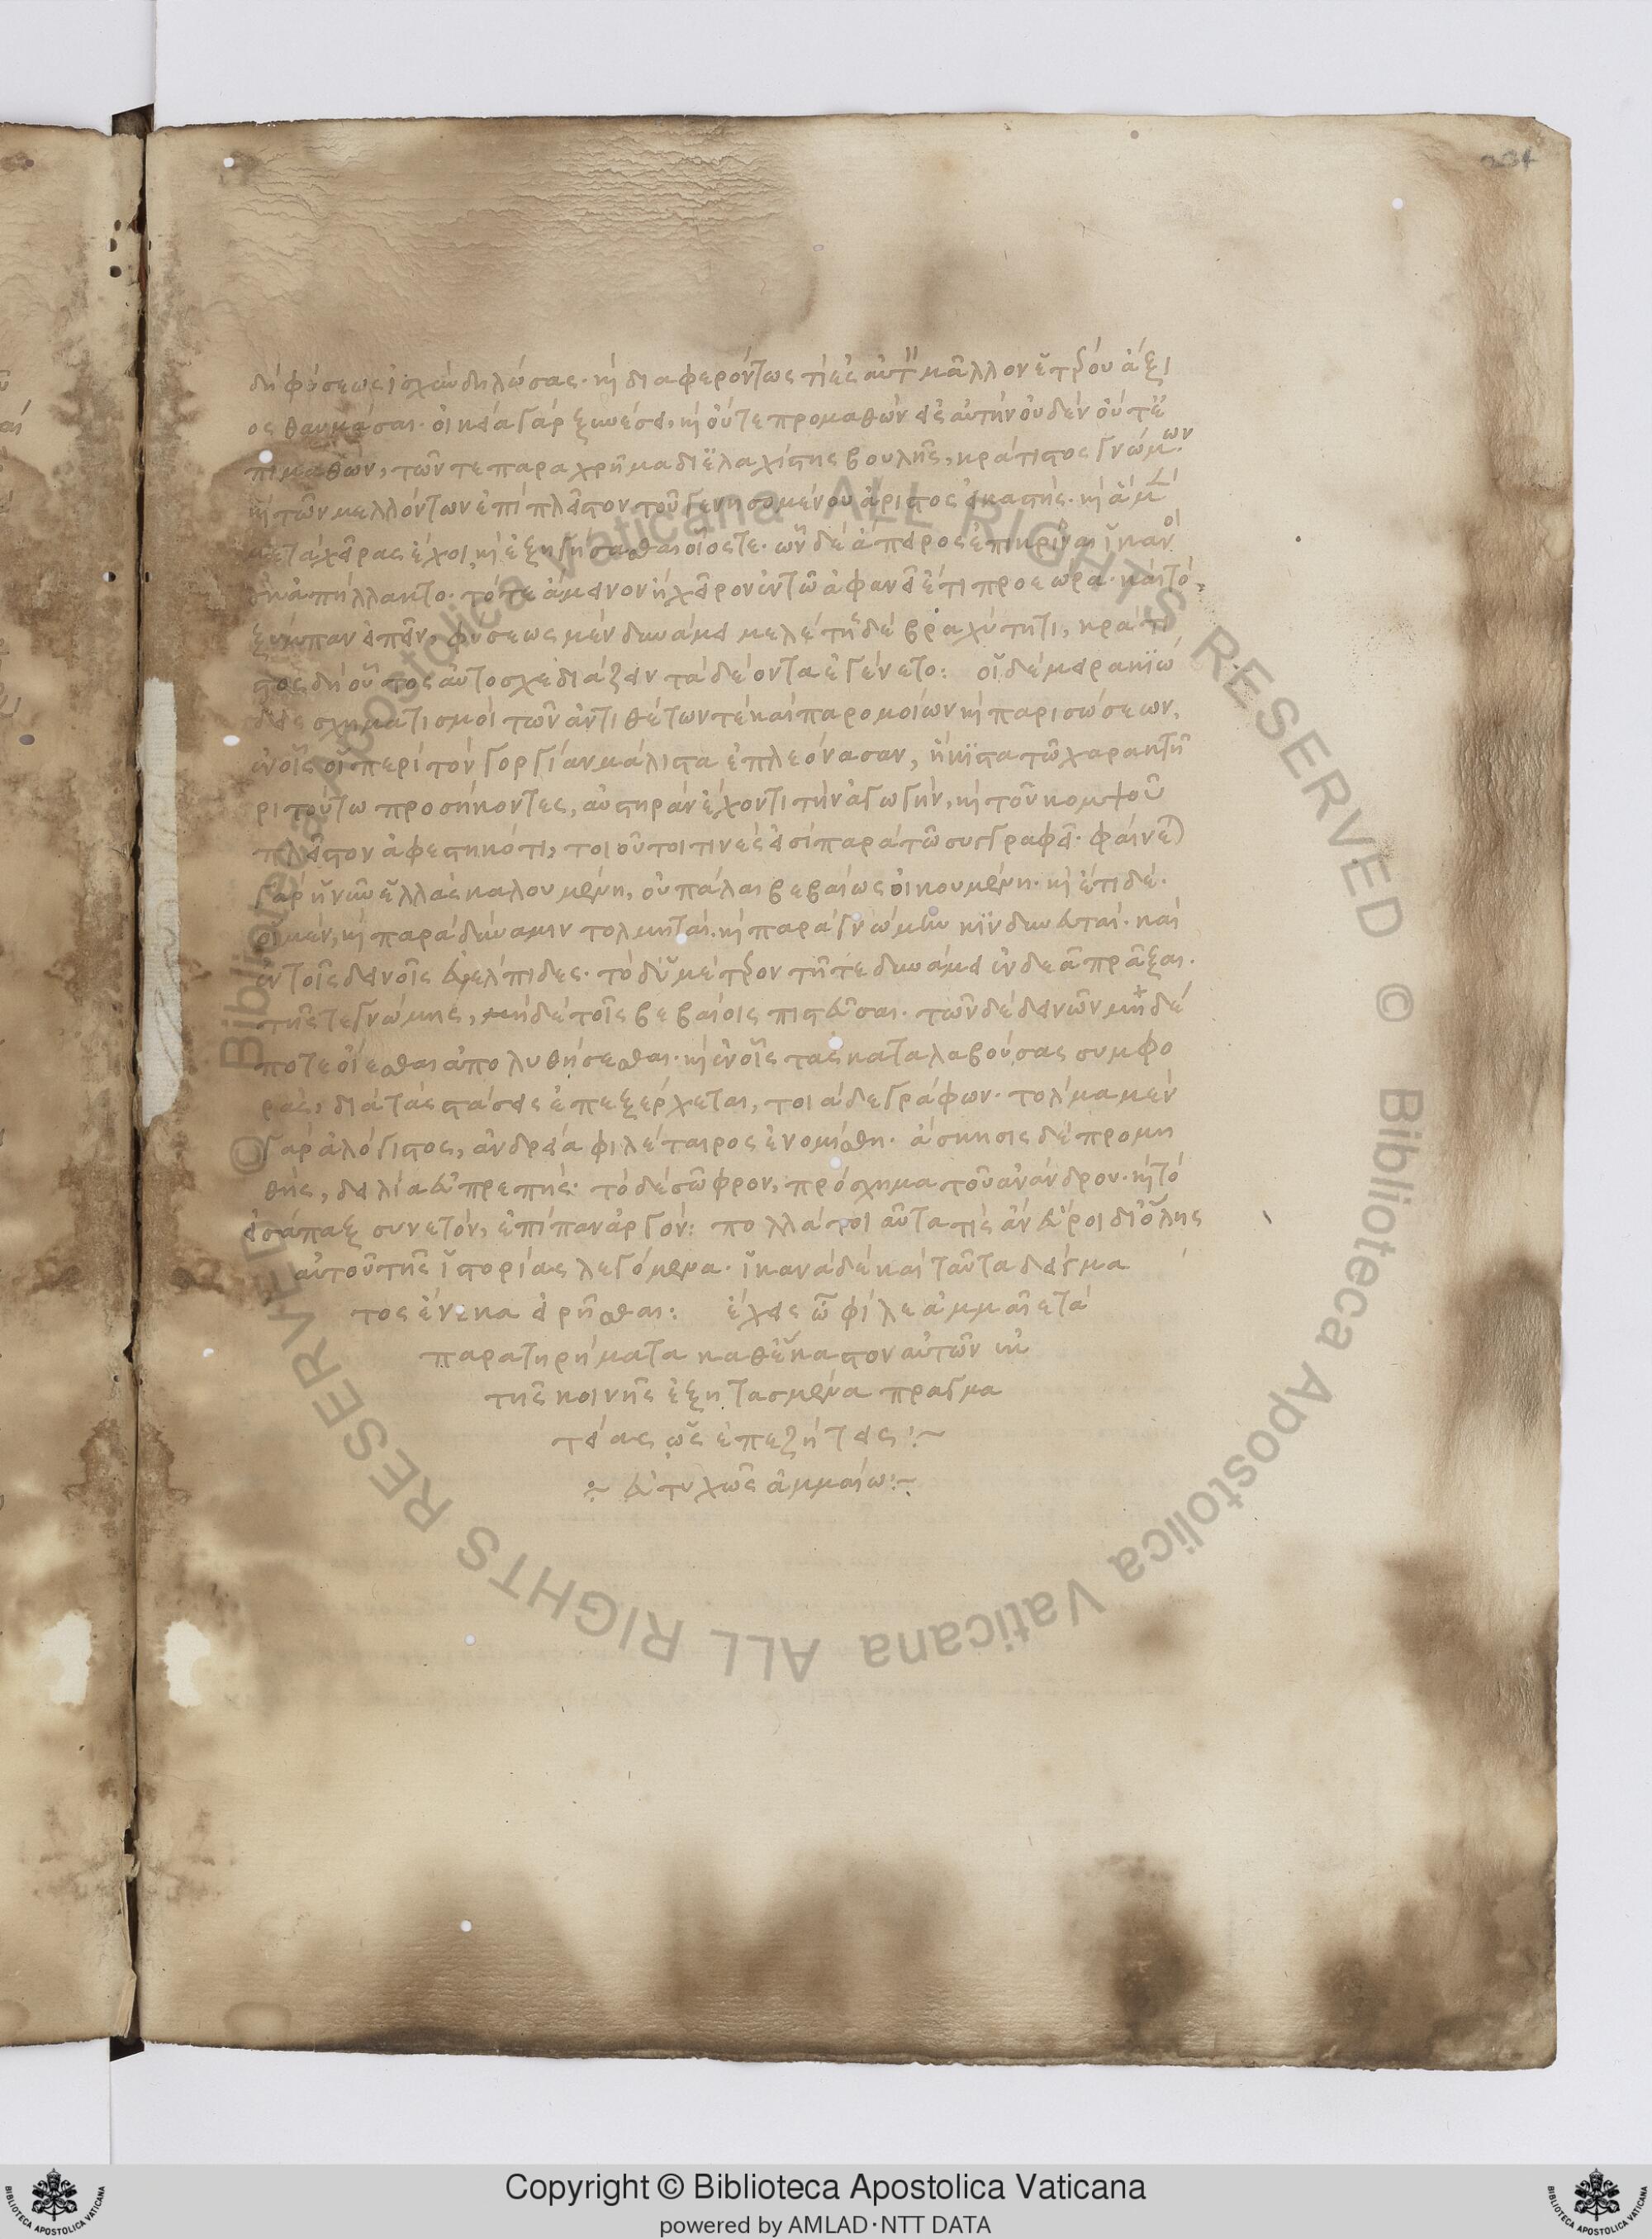 δὴ φύσεως ἰσχὺν δηλώσας· καὶ διαφερόντως τι ἐς αὐτὸ μᾶλλον ἑτέρου ἄξι
ος θαυμάσαι· οἰκεία γὰρ ξυνέσει, καὶ οὔτε προμαθὼν ἐς αὐτὴν οὐδὲν οὔτ' ἐ
πιμαθών, τῶν τε παραχρῆμα δι' ἐλαχίστης βουλῆς, κράτιστος γνώμων
καὶ τῶν μελλόντων ἐπὶ πλεῖστον τοῦ γενησομένου ἄριστος εἰκαστής· καὶ ἃ μὲν
μετὰ χεῖρας ἔχοι, καὶ ἐξηγήσασθαι οἷός τε· ὧν δὲ ἄπειρος ἐπικρῖναι ἱκανῶς
οὐκ ἀπήλλακτο· τό τε ἄμεινον ἢ χεῖρον ἐν τῶ ἀφανεῖ ἔτι προεώρα· καὶ τὸ
ξύμπαν εἰπεῖν, φύσεως μὲν δυνάμει μελέτης δὲ βραχύτητι, κράτι
στος δὴ οὗτος αὐτοσχεδιάζειν τὰ δέοντα ἐγένετο: οἱ δὲ μειρακιώ
δεις σχηματισμοὶ τῶν ἀντιθέτων τὲ καὶ παρομοίων καὶ παρισώσεων,
ἐν οἷς οἱ περὶ τὸν Γοργίαν μάλιστα ἐπλεόνασαν, ἥκιστα τῶ χαρακτῆ
ρι τούτω προσήκοντες, αὐστηρὰν ἔχοντι τὴν ἀγωγὴν, καὶ τοῦ κομψοῦ
πλεῖστον ἀφεστηκότι, τοιοῦτοι τινές εἰσι παρὰ τῶ συγγραφεῖ· φαίνεται
γὰρ ἡ νῦν ἑλλὰς καλουμένη, οὐ πάλαι βεβαίως οἰκουμένη· καὶ ἔτι δέ·
οἱ μὲν, καὶ παρὰ δύναμιν τολμηταί· καὶ παρὰ γνώμην κινδυνευταί· καὶ
ἐν τοῖς δεινοῖς εὐέλπιδες· τὸ δ' ὑμέτερον τῆς τε δυνάμει ἐνδεᾶ πρᾶξαι·
τῆς τε γνώμης, μηδὲ τοῖς βεβαίοις πιστεῦσαι· τῶν δὲ δεινῶν μηδέ
ποτε οἴεσθαι ἀπολυθήσεσθαι· καὶ ἐν οἷς τὰς καταλαβούσας συμφο
ρὰς, διὰ τὰς στάσεις ἐπεξέρχεται, τοιάδε γράφων· τόλμα μὲν
γὰρ ἀλόγιστος, ἀνδρεία φιλέταιρος ἐνομίσθη· ἄσκησις δὲ προμη
θής, δειλία εὐπρεπής· τὸ δὲ σῶφρον, πρόσχημα τοῦ ἀνάνδρου· καὶ τὸ
εἰσάπαξ συνετὸν, ἐπίπαν ἀργόν: πολλὰ τοιαῦτα τὶς ἂν εὕροι δι' ὅλης
αὐτοῦ τῆς ἱστορίας λεγόμενα· ἱκανὰ δὲ καὶ ταῦτα δείγμα
τος ἕνεκα εἰρῆσθαι: ἔχεις ὦ φίλε ἀμμαῖε τὰ
παρατηρήματα καθ' ἕκαστον αὐτῶν ἐκ
τῆς κοινῆς ἐξητασμένα πραγμα
τείας ὡς ἐπεζήτεις:~
:~ εὐτυχῶς ἀμμαίω:~
Copyright © Biblioteca Apostolica Vaticana
powered by AMLAD·NTT DATA